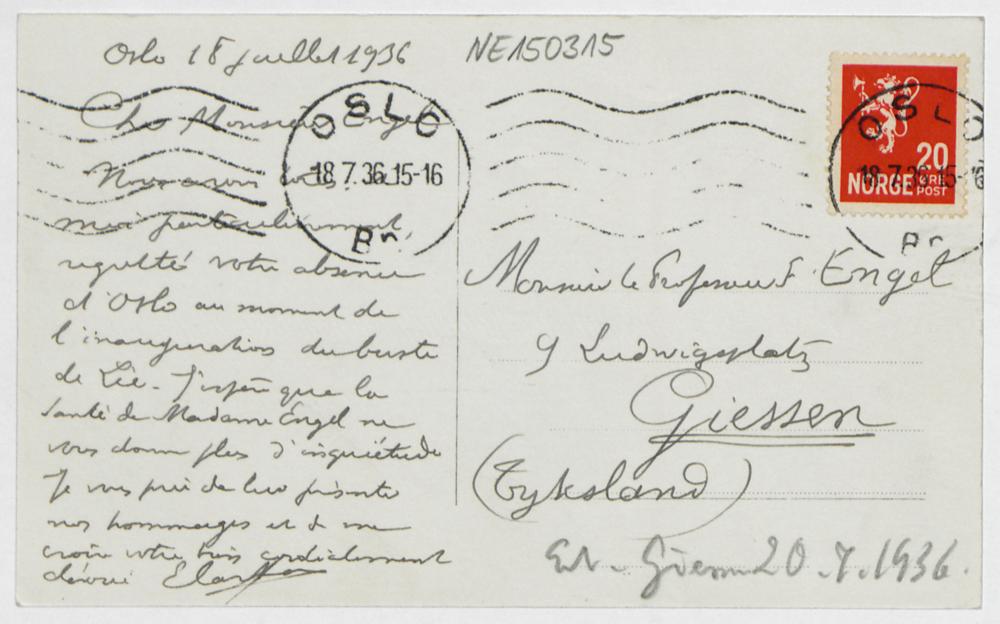 Oslo 18 juillet 1936
NE150315
Cher Monsieur Engel
Nous avons tous, et
moi particulièrement,
regretté votre absence
d'Oslo au moment de
l'inauguration du buste
de Lie. J'espère que la
santé de Madame Engel ne
vous donne plus d'inquiétude
Je vous prie de lui présenter
nos hommages et de me
croire votre très cordialement
dévoué
OSLO
18.7.36.15-16
Br.
OSLO
18.7.36.15-16
Br.
20
NORGE ØRE
POST
Monsieur le Professeur F. Engel
9 Ludwigsplatz
Giessen
(Tyksland)
Giessen 20.7.1936.